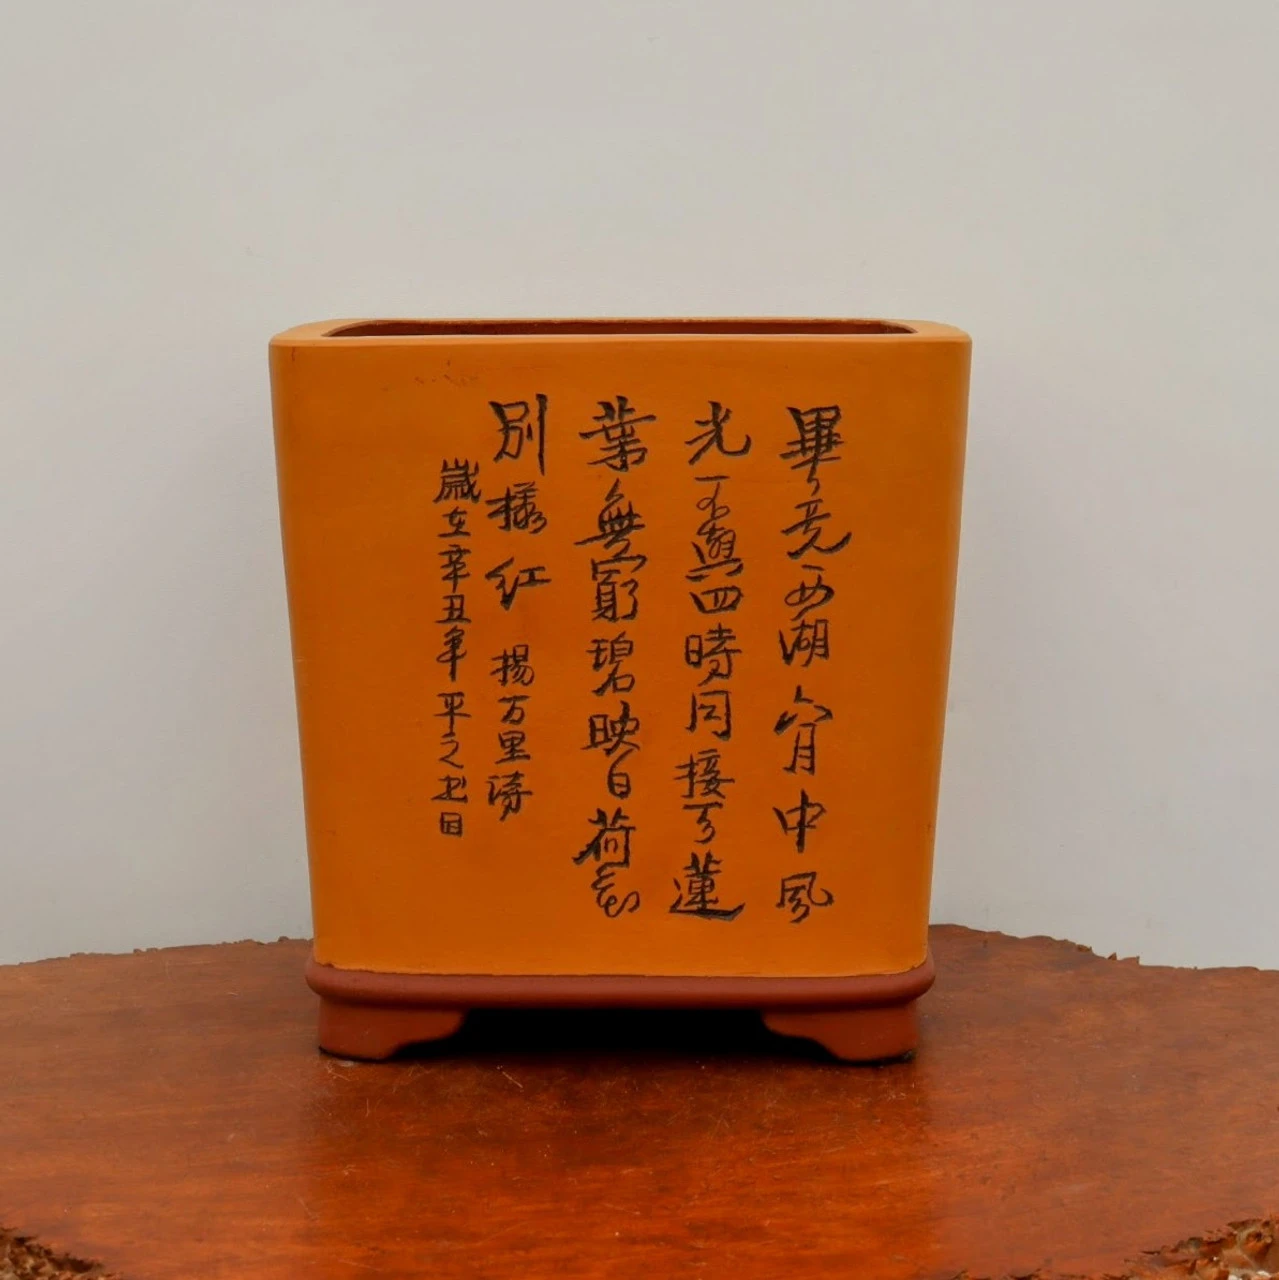 畢竟西湖六月中風
光不與四時同接天蓮
葉無窮碧映日荷花
別樣紅 楊万里詩
歲在辛丑年平之书